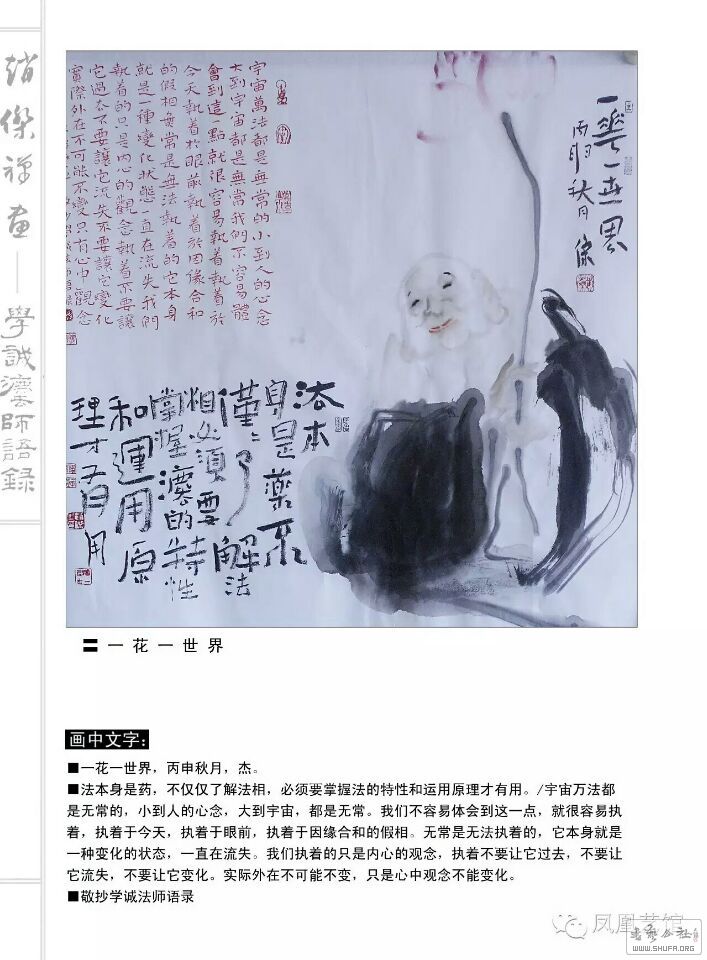 趙傑禅画——學誠灋師語録
一花一世界
丙申秋月 傑
宇宙萬法都是無常的小到人的心念
大到宇宙都是無常我們不容易體
會到這一點就很容易執着執着於
今天執着於眼前執着於因緣合和
的假相無常是無法執着的它本身
就是一種變化狀態一直在流失我們
執着的只是内心的觀念執着不要讓
它過去不要讓它流失不要讓它變化
實際外在不可能不變只有心中觀念
法本
身是藥不
僅僅了解法
相必須要
掌握灋的特性
和運用原
理才有用
一花一世界
画中文字：
■一花一世界，丙申秋月，杰。
■法本身是药，不仅仅了解法相，必须要掌握法的特性和运用原理才有用。/宇宙万法都
是无常的，小到人的心念，大到宇宙，都是无常。我们不容易体会到这一点，就很容易执
着，执着于今天，执着于眼前，执着于因缘合和的假相。无常是无法执着的，它本身就是
一种变化的状态，一直在流失。我们执着的只是内心的观念，执着不要让它过去，不要让
它流失，不要让它变化。实际外在不可能不变，只是心中观念不能变化。
■敬抄学诚法师语录
凤凰艺馆
书艺公社
WWW.SHUFA.ORG